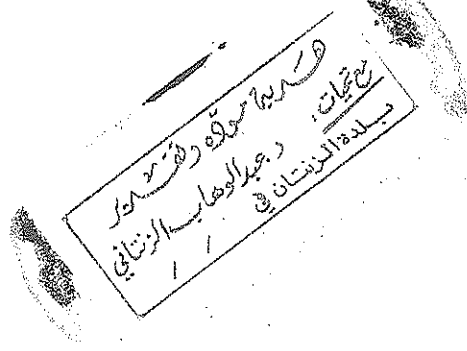 هدية مودّة وتقدير
مع تحيات:
د. عبدالوهاب الزنتاني
بلدة الزنتان في
/ /